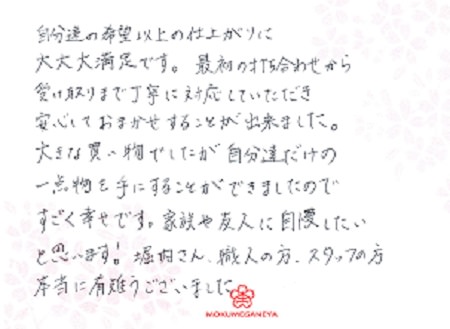 自分達の希望以上の仕上がりに
大大大満足です。最初の打ち合わせから
受け取りまで丁寧に対応していただき
安心しておまかせすることが出来ました。
大きな買い物でしたが自分達だけの
一点物を手にすることができましたので
すごく幸せです。家族や友人に自慢したい
と思います！堀内さん、職人の方、スタッフの方
本当に有難うございました
MOKUMEGANEYA